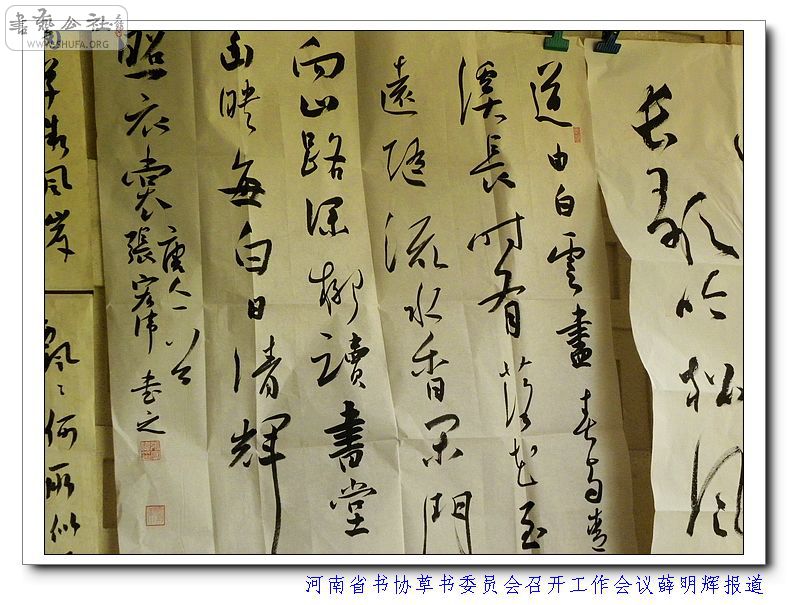 長歌吟松風
道由白雲盡春與青
溪長時有落花至
遠隨流水香閒門
向山路深柳讀書堂
幽映每白日清輝
照衣裳
唐人一首
張宏偉書之
草微風岸
飄飄何所似
書藝公社
WWW.SHUFA.ORG
河南省书协草书委员会召开工作会议薛明辉报道